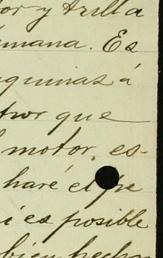 or y trilla
emana. Es
quinas á
tror que
motor, es-
haré el pre
i es posible
bien hecha